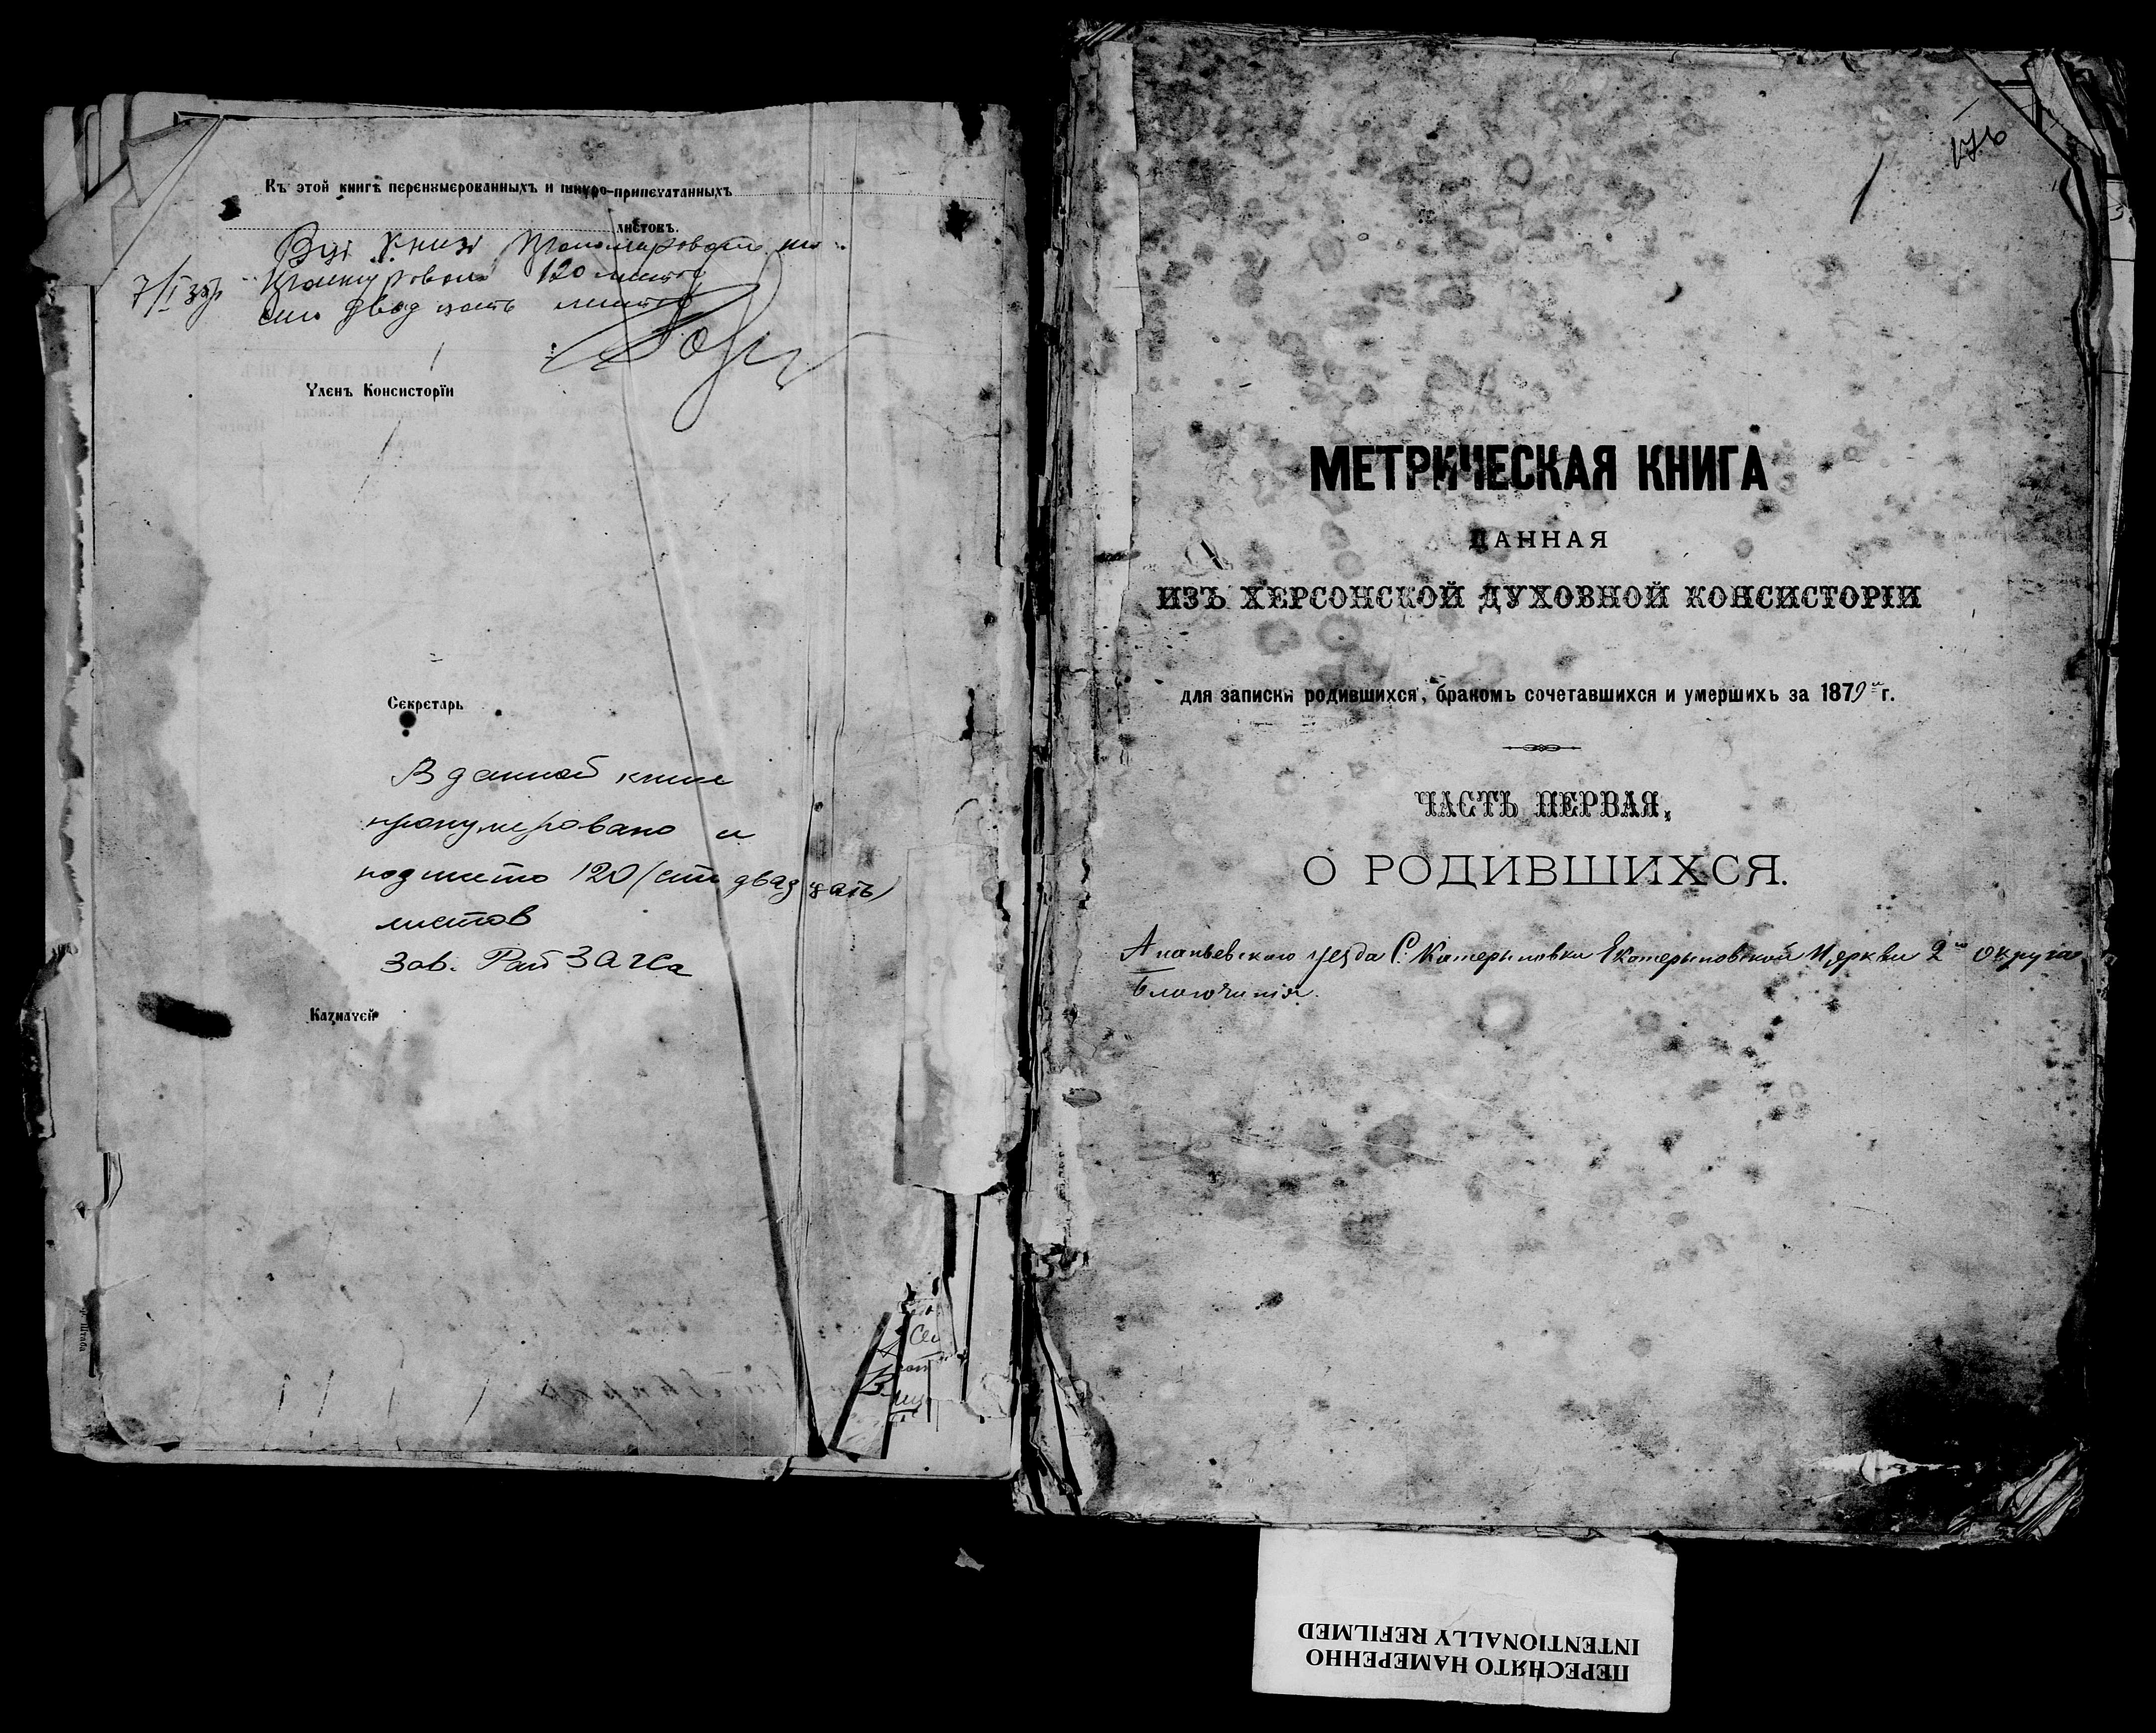 Къ этой книгѣ перенумерованныхъ и шнуро-припечатанныхъ
листовъ.
Вцi книзi Прономеровано та
Прошнуровано 120 листов
сто двадцать листов
Членъ Консисторіи
Секретарь
В данной книге
пронумеровано и
подшито 120 (сто двадцать)
листов
Зав. Рай ЗАГСа
Казначей
МЕТРИЧЕСКАЯ КНИГА
ДАННАЯ
ИЗЪ ХЕРСОНСКОЙ ДУХОВНОЙ КОНСИСТОРІИ
для записки родившихся, бракомъ сочетавшихся и умершихъ за 1879 г.
ЧАСТЬ ПЕРВАЯ,
О РОДИВШИХСЯ.
Ананьевскаго уезда С. Катериновки Екатериновской Церкви 2го округа
Благочинія.
ПЕРЕСНЯТО НАМЕРЕННО
INTENTIONALLY REFILMED